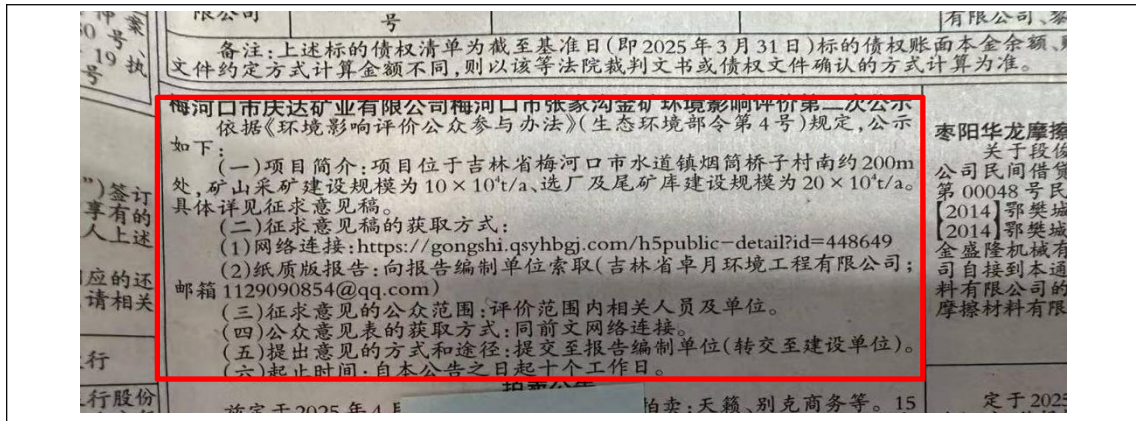 限公司
号
有限公司、
号
19 执
号
备注:上述标的债权清单为截至基准日(即2025年3月31日)标的债权账面本金余额、
文件约定方式计算金额不同,则以该等法院裁判文书或债权文件确认的方式计算为准。
梅河口市庆达矿业有限公司梅河口市张家沟金矿环境影响评价第二次公示
依据《环境影响评价公众参与办法》(生态环境部令第4号)规定,公示
如下:
(一)项目简介:项目位于吉林省梅河口市水道镇烟筒桥子村南约200m
处,矿山采矿建设规模为10×10⁴t/a、选厂及尾矿库建设规模为20×10⁴t/a。
具体详见征求意见稿。
(二)征求意见稿的获取方式:
(1)网络连接:https://gongshi.qsyhbgj.com/h5public-detail?id=448649
(2)纸质版报告:向报告编制单位索取(吉林省卓月环境工程有限公司;
邮箱1129090854@qq.com)
(三)征求意见的公众范围:评价范围内相关人员及单位。
(四)公众意见表的获取方式:同前文网络连接。
(五)提出意见的方式和途径:提交至报告编制单位(转交至建设单位)。
(六)起止时间:自本公告之日起十个工作日。
")签订
享有的
人上述
应的还
请相关
行
行股份
枣阳华龙摩擦
关于段俊
公司民间借贷
第00048号民
【2014】鄂樊城
【2014】鄂樊城
金盛隆机械有
司自接到本通
料有限公司的
摩擦材料有限
拍卖公告
定于2025年4月
拍卖:天籁、别克商务等。15
定于2025